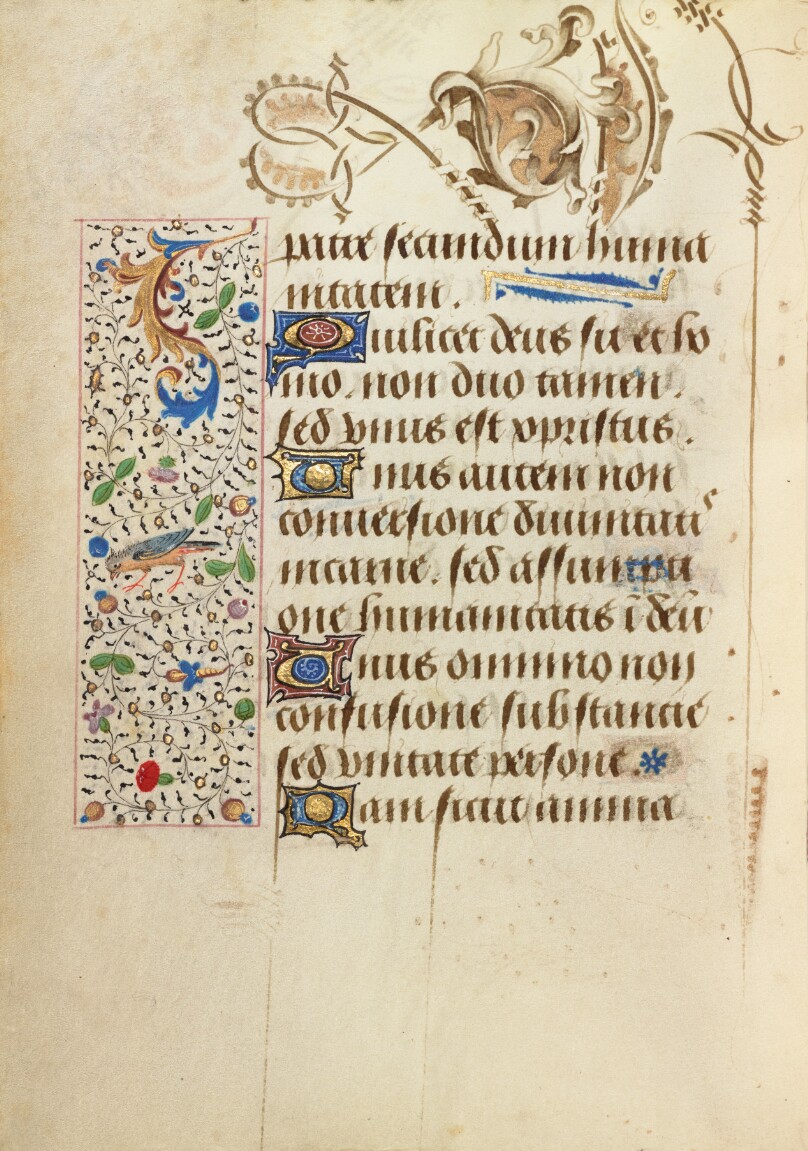 patre secundum huma
nitatem.
Qui licet deus sit et ho
mo. non duo tamen.
sed vnus est xpristus.
Unus autem non
conuersione diuinitatis
in carne. sed assumpti
one humanitatis ī deū
Unus omnino non
confusione substancie
sed vnitate persone.
Nam sicut anima